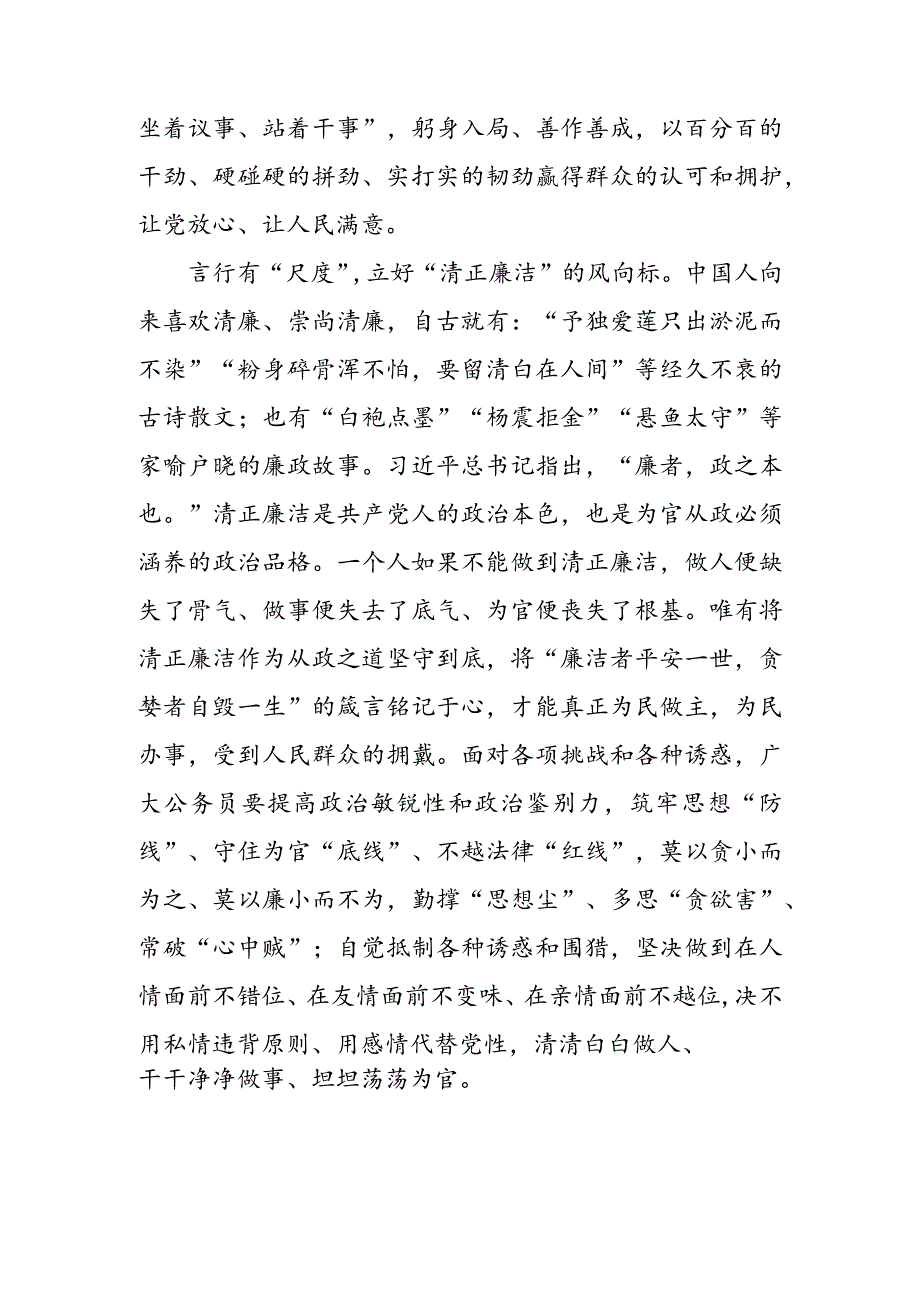 坐着议事、站着干事”，躬身入局、善作善成，以百分百的
干劲、硬碰硬的拼劲、实打实的韧劲赢得群众的认可和拥护，
让党放心、让人民满意。
言行有“尺度”,立好“清正廉洁”的风向标。中国人向
来喜欢清廉、崇尚清廉，自古就有：“予独爱莲只出淤泥而
不染”“粉身碎骨浑不怕，要留清白在人间”等经久不衰的
古诗散文；也有“白袍点墨”“杨震拒金”“悬鱼太守”等
家喻户晓的廉政故事。习近平总书记指出，“廉者，政之本
也。”清正廉洁是共产党人的政治本色，也是为官从政必须
涵养的政治品格。一个人如果不能做到清正廉洁，做人便缺
失了骨气、做事便失去了底气、为官便丧失了根基。唯有将
清正廉洁作为从政之道坚守到底，将“廉洁者平安一世，贪
婪者自毁一生”的箴言铭记于心，才能真正为民做主，为民
办事，受到人民群众的拥戴。面对各项挑战和各种诱惑，广
大公务员要提高政治敏锐性和政治鉴别力，筑牢思想“防
线”、守住为官“底线”、不越法律“红线”，莫以贪小而
为之、莫以廉小而不为，勤撑“思想尘”、多思“贪欲害”、
常破“心中贼”；自觉抵制各种诱惑和围猎，坚决做到在人
情面前不错位、在友情面前不变味、在亲情面前不越位,决不
用私情违背原则、用感情代替党性，清清白白做人、
干干净净做事、坦坦荡荡为官。